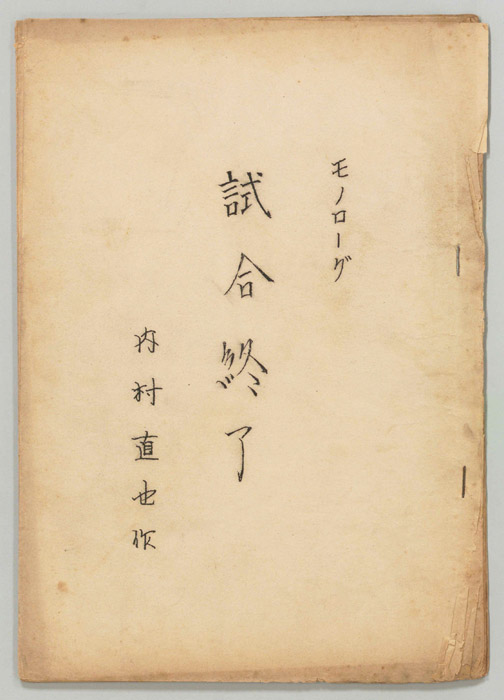 モノローグ
試合終了
内村直也作